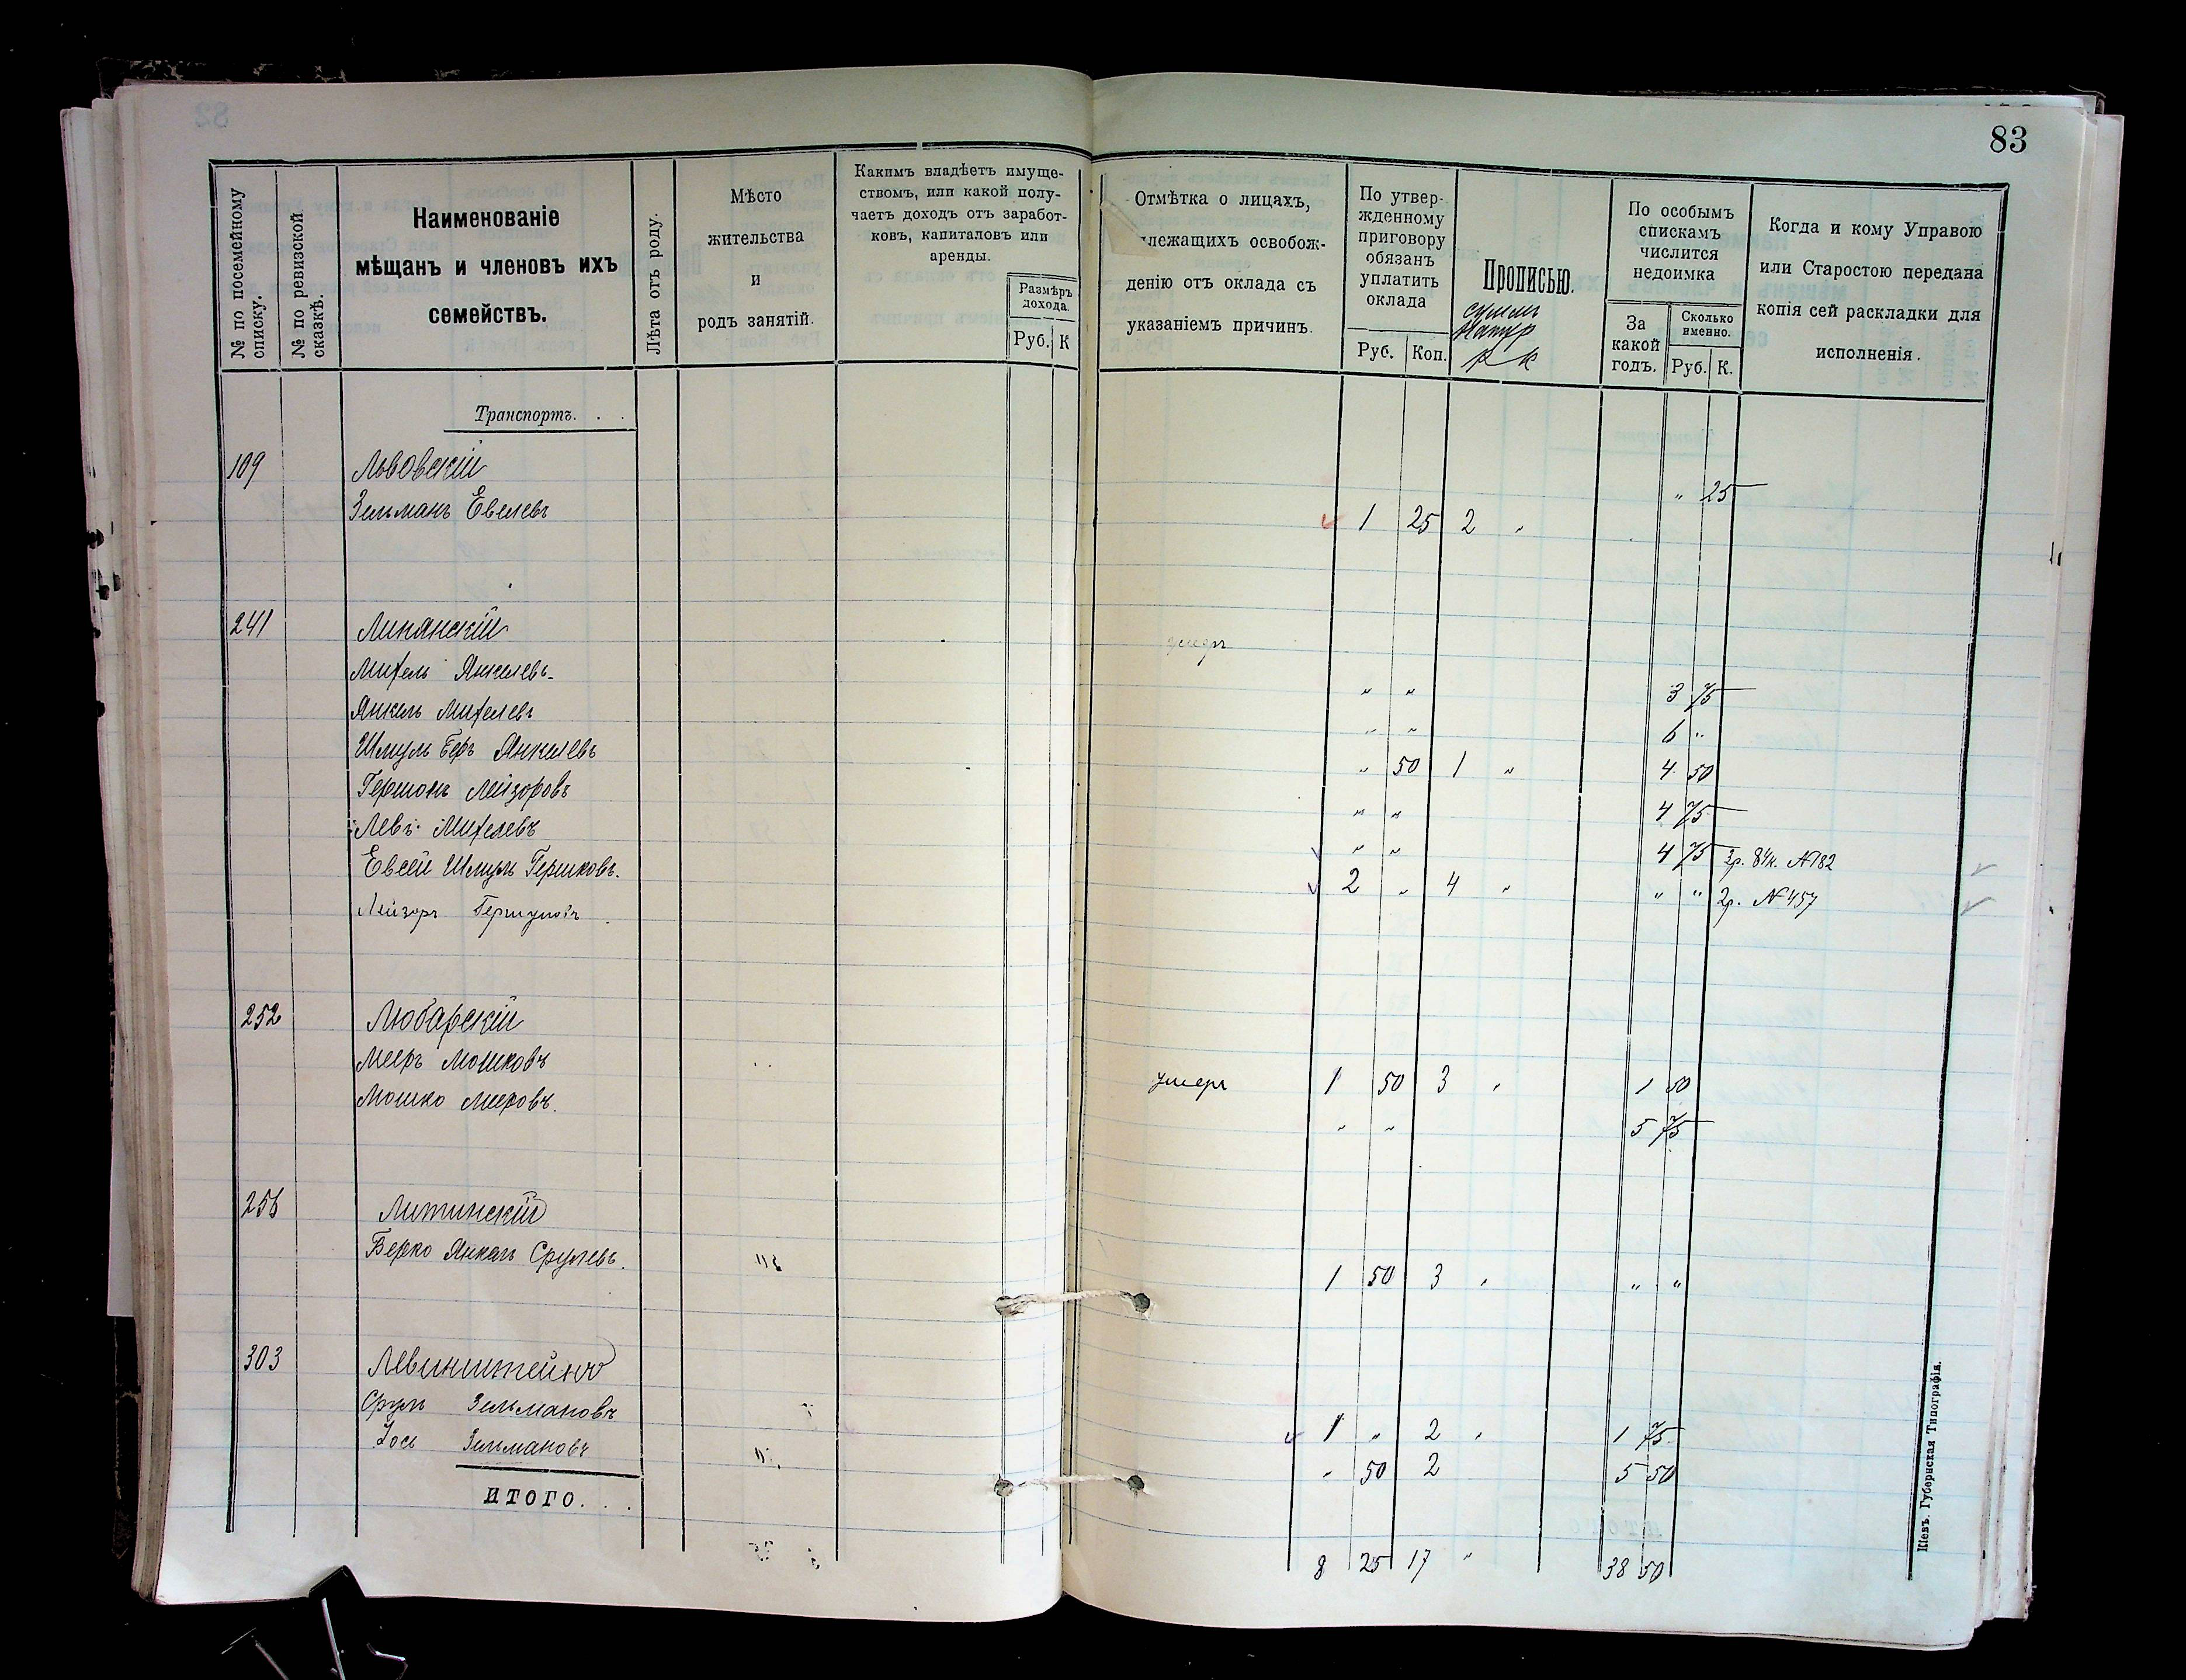 83
№ по посемейному списку.
№ по ревизской сказкѣ.
Наименованіе
мѣщанъ и членовъ ихъ
семействъ.
Лѣта отъ роду.
Мѣсто
жительства
и
родъ занятій.
Какимъ владѣетъ имуще-
ствомъ, или какой полу-
чаетъ доходъ отъ заработ-
ковъ, капиталовъ или
аренды.
Размѣръ
дохода.
Руб. К
Отмѣтка о лицахъ,
лежащихъ освобож-
денію отъ оклада съ
указаніемъ причинъ.
По утвер-
жденному
приговору
обязанъ
уплатить
оклада
Руб. Коп.
Прописью.
р к
По особымъ
спискамъ
числится
недоимка
За
какой
годъ.
Сколько
именно.
Руб. К.
Когда и кому Управою
или Старостою передана
копія сей раскладки для
исполненія.
Транспортъ. . .
109 Львовскій
Зельманъ Евелевъ 1 25 2 „ „ 25
241 Линянскій умеръ
Михель Янкелевъ „ „ 3 75
Янкель Михелевъ „ „ 6 „
Шмуль Беръ Янкелевъ „ 50 1 „ 4 50
Гершонъ Лейзоровъ „ „ 4 75
Левъ Михелевъ „ „ 4 75 3р. 84к. №182
Евсей Шмуль Гершковъ. 2 „ 4 „ „ „ 2р. №457
Лейзоръ
252 Любарскій
Мееръ Мошковъ умеръ 1 50 3 „ 1 50
Мошко Мееровъ. „ „ 5 75
256 Литинскій
Берко Янкель Срулевъ. 1 50 3 „ „ „
303 Левинштейнъ
Сруль Зельмановъ 1 „ 2 „ 1 75
Іось Зельмановъ „ 50 2 5 50
ИТОГО. . .
8 25 17 „ 38 50
Кіевъ. Губернская Типографія.